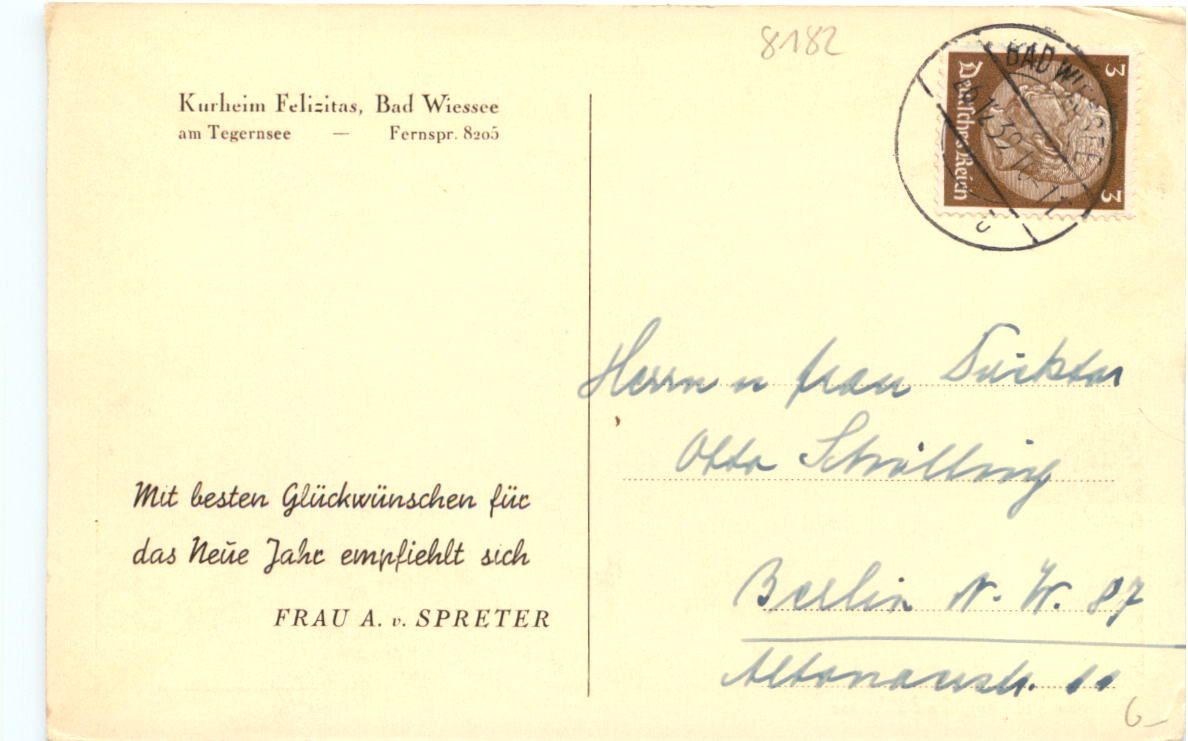 8182
Kurheim Felizitas, Bad Wiessee
am Tegernsee — Fernspr. 8205
BAD WIESSEE
3
3
Deutsches Reich
Herrn u Frau Direktor
Otto Schilling
Mit besten Glückwünschen für
das Neue Jahr empfiehlt sich
FRAU A. v. SPRETER
Berlin N. W. 87
Altonaerstr. 11
6-